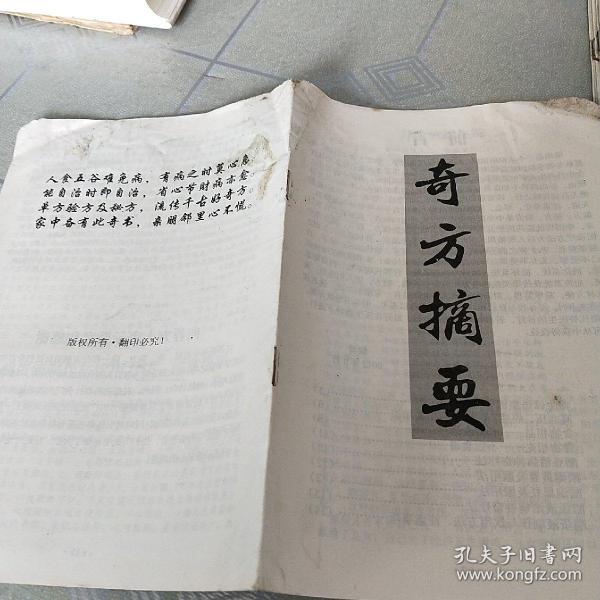 人食五谷难免病，有病之时莫心急。
能自治时即自治，省心节财病亦愈。
单方验方及秘方，流传千古好奇方。
家中备有此奇书，亲朋邻里心不慌。
版权所有·翻印必究！
奇方摘要
孔夫子旧书网
www.kongfz.com